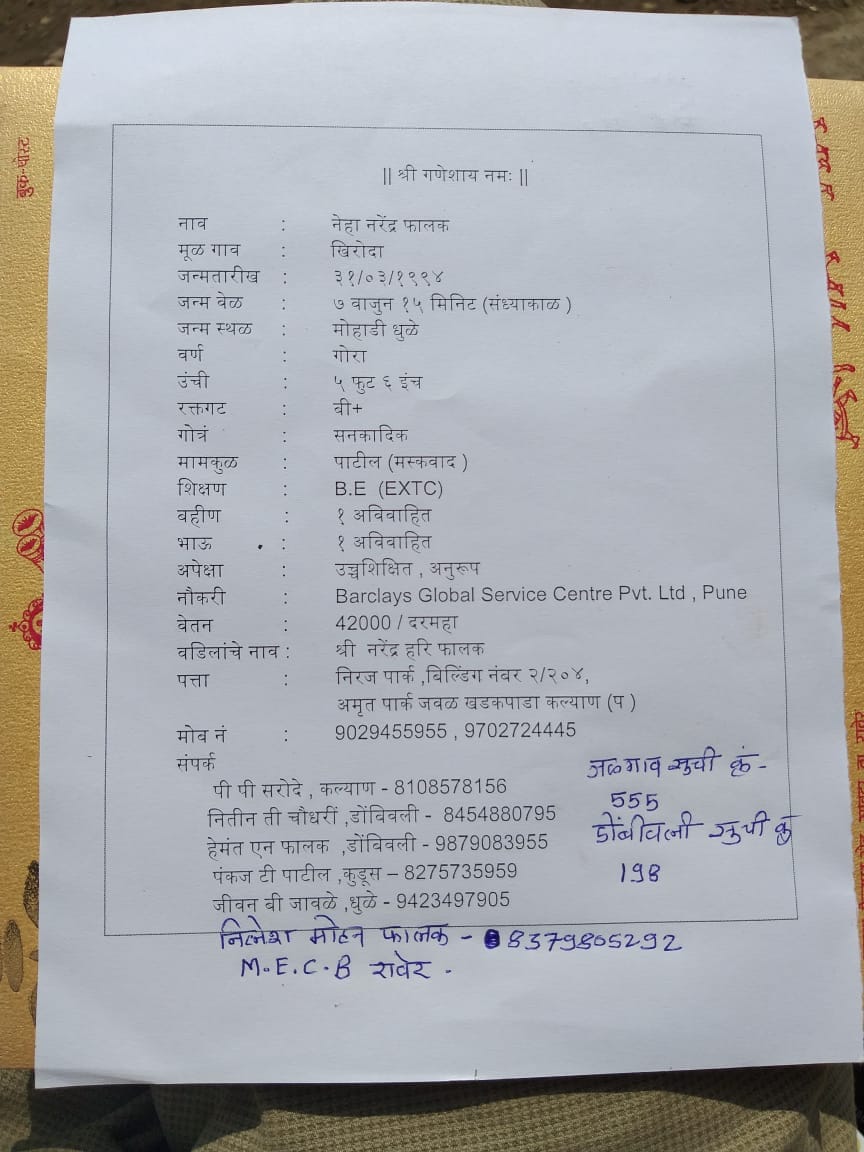 || श्री गणेशाय नमः ||
नाव : नेहा नरेंद्र फालक
मूळ गाव : खिरोदा
जन्मतारीख : ३१/०३/१९९४
जन्म वेळ : ७ वाजुन १५ मिनिट (संध्याकाळ )
जन्म स्थळ : मोहाडी धुळे
वर्ण : गोरा
उंची : ५ फुट ६ इंच
रक्तगट : वी+
गोत्रं : सनकादिक
मामकुळ : पाटील (मस्कवाद )
शिक्षण : B.E (EXTC)
वहीण : १ अविवाहित
भाऊ : १ अविवाहित
अपेक्षा : उच्चशिक्षित , अनुरूप
नौकरी : Barclays Global Service Centre Pvt. Ltd , Pune
वेतन : 42000 / दरमहा
वडिलांचे नाव : श्री नरेंद्र हरि फालक
पत्ता : निरज पार्क ,विल्डिंग नंवर २/२०४,
अमृत पार्क जवळ खडकपाडा कल्याण (प )
मोव नं : 9029455955 , 9702724445
संपर्क
पी पी सरोदे , कल्याण - 8108578156
नितीन ती चौधरीं ,डोंविवली - 8454880795
हेमंत एन फालक ,डोंविवली - 9879083955
पंकज टी पाटील ,कुडूस – 8275735959
जीवन वी जावळे ,धुळे - 9423497905
जळगाव सुची क्रं -
555
डोंबीवली सुची क्रं
198
निलेश मोहन फालक - 8379805292
M.E.C.B रावेर .